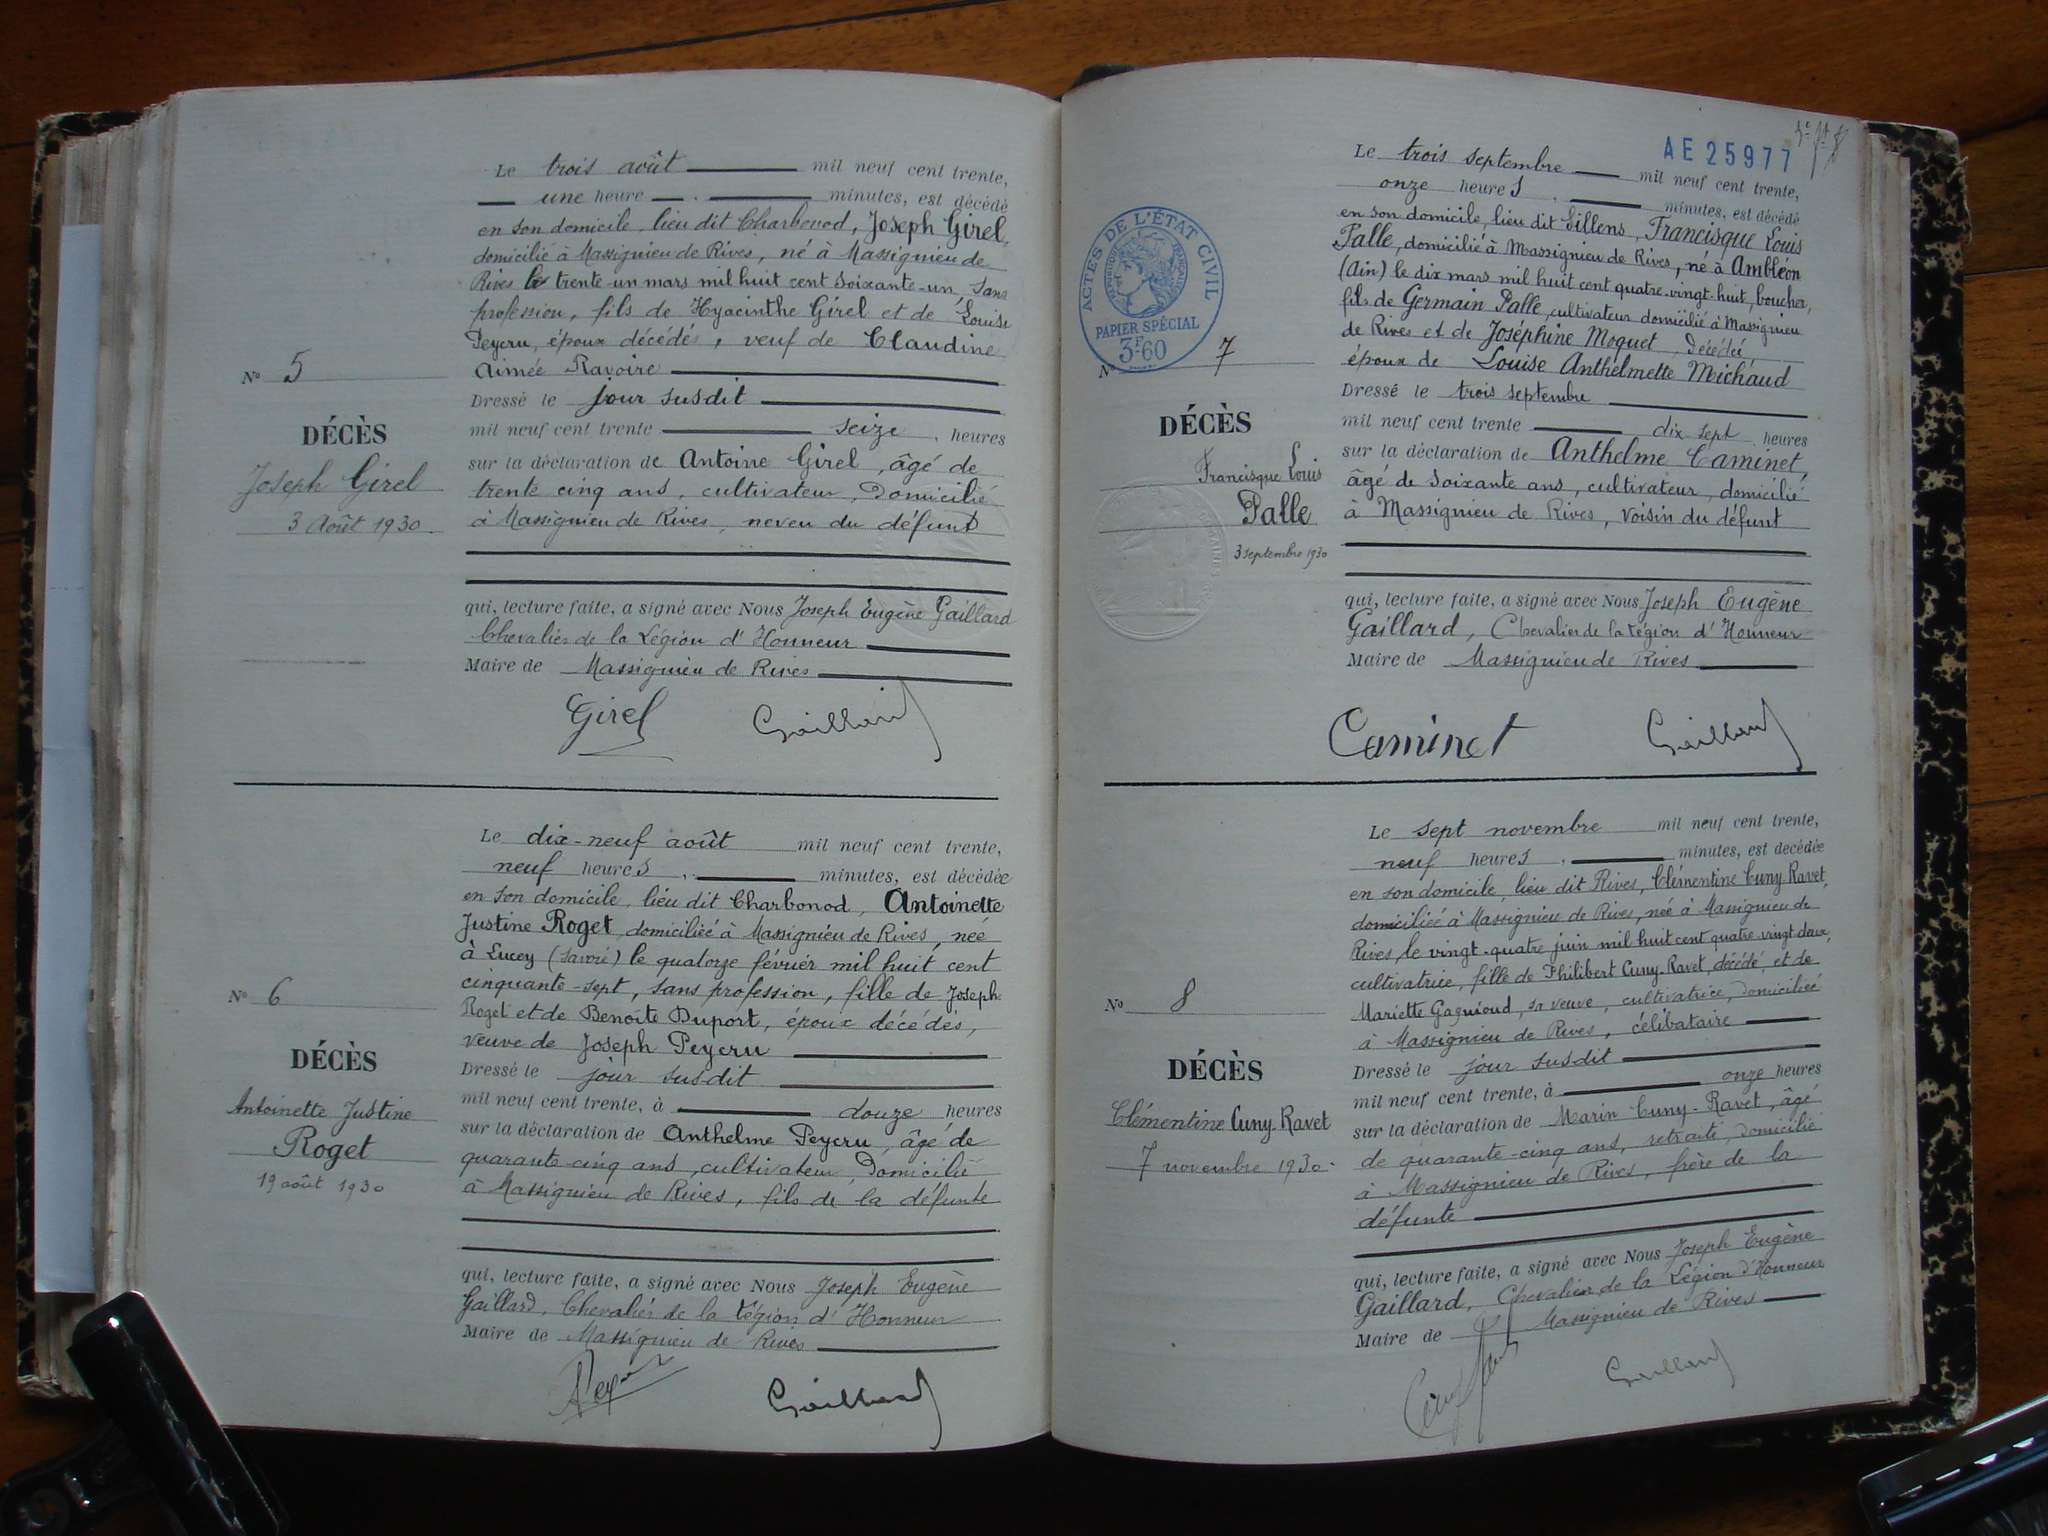 Le trois août mil neuf cent trente,
une heure minutes, est décédé
en son domicile, lieu dit Charbonod, Joseph Girel,
domicilié à Massignieu de Rives, né à Massignieu de
Rives le trente-un mars mil huit cent soixante-un, sans
profession, fils de Hyacinthe Girel et de Louise
Peycru, époux décédés, veuf de Claudine
Aimée Ravoire
Dressé le jour susdit
mil neuf cent trente seize heures
sur la déclaration de Antoine Girel, âgé de
trente cinq ans, cultivateur, domicilié
à Massignieu de Rives, neveu du défunt
qui, lecture faite, a signé avec Nous Joseph Eugène Gaillard
Chevalier de la Légion d'Honneur
Maire de Massignieu de Rives
Girel Gaillard
N° 5
DÉCÈS
Joseph Girel
3 Août 1930
Le dix-neuf août mil neuf cent trente,
neuf heures, minutes, est décédée
en son domicile, lieu dit Charbonod, Antoinette
Justine Roget, domiciliée à Massignieu de Rives, née
à Lucey (Savoie) le quatorze février mil huit cent
cinquante-sept, sans profession, fille de Joseph
Roget et de Benoîte Duport, époux décédés,
veuve de Joseph Peycru
Dressé le jour susdit
mil neuf cent trente, à douze heures
sur la déclaration de Anthelme Peycru, âgé de
quarante-cinq ans, cultivateur, domicilié
à Massignieu de Rives, fils de la défunte
qui, lecture faite, a signé avec Nous Joseph Eugène
Gaillard, Chevalier de la Légion d'Honneur
Maire de Massignieu de Rives
Gaillard
N° 6
DÉCÈS
Antoinette Justine
Roget
19 août 1930
AE 25977
Le trois septembre mil neuf cent trente,
onze heures, minutes, est décédé
en son domicile, lieu dit Lillens, Francisque Louis
Palle, domicilié à Massignieu de Rives, né à Ambléon
(Ain) le dix mars mil huit cent quatre-vingt-huit, boucher,
fils de Germain Palle, cultivateur domicilié à Massignieu
de Rives et de Joséphine Moquet, décédée,
époux de Louise Anthelmette Michaud
Dressé le trois septembre
mil neuf cent trente dix sept heures
sur la déclaration de Anthelme Caminet,
âgé de soixante ans, cultivateur, domicilié
à Massignieu de Rives, voisin du défunt
qui, lecture faite, a signé avec Nous Joseph Eugène
Gaillard, Chevalier de la Légion d'Honneur
Maire de Massignieu de Rives
Caminet Gaillard
ACTES DE L'ÉTAT CIVIL
PAPIER SPÉCIAL
3F60
N° 7
DÉCÈS
Francisque Louis
Palle
3 septembre 1930
Le sept novembre mil neuf cent trente,
neuf heures, minutes, est décédée
en son domicile, lieu dit Rives, Clémentine Cuny-Ravet,
domiciliée à Massignieu de Rives, née à Massignieu de
Rives, le vingt-quatre juin mil huit cent quatre vingt deux,
cultivatrice, fille de Philibert Cuny-Ravet, décédé, et de
Mariette Gagnioud, sa veuve, cultivatrice, domiciliée
à Massignieu de Rives, célibataire
Dressé le jour susdit
mil neuf cent trente, à onze heures
sur la déclaration de Marin Cuny-Ravet, âgé
de quarante-cinq ans, retraité, domicilié
à Massignieu de Rives, frère de la
défunte
qui, lecture faite, a signé avec Nous Joseph Eugène
Gaillard, Chevalier de la Légion d'Honneur
Maire de Massignieu de Rives
Gaillard
N° 8
DÉCÈS
Clémentine Cuny-Ravet
7 novembre 1930